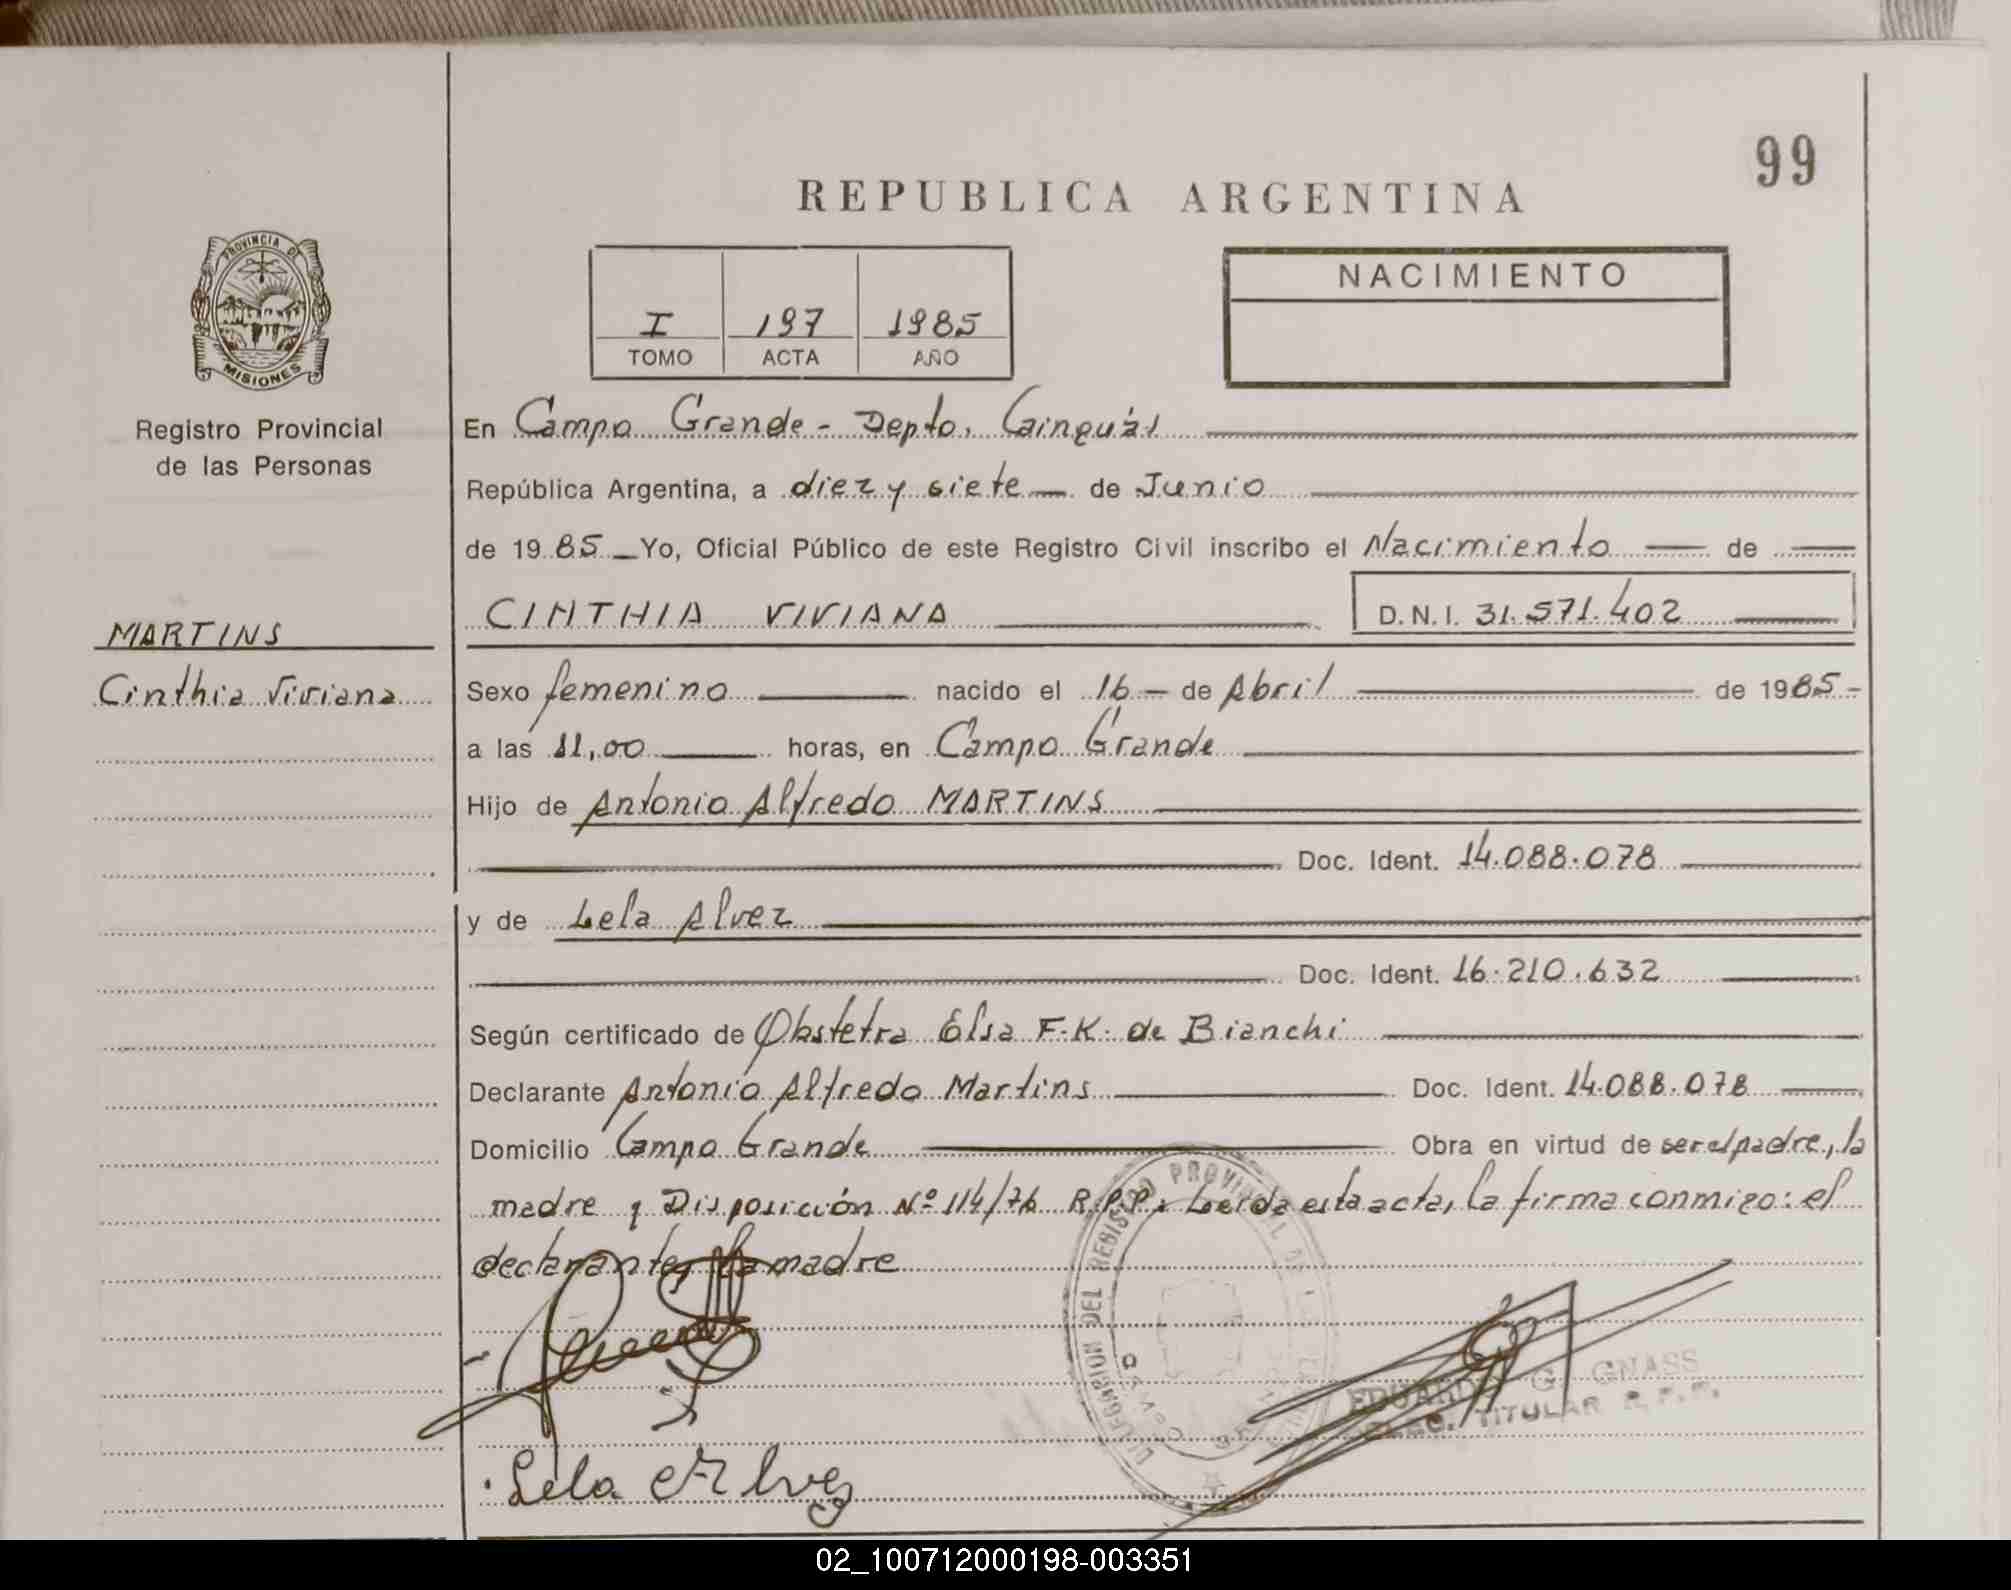 99
REPUBLICA ARGENTINA
PROVINCIA DE
MISIONES
Registro Provincial
de las Personas
NACIMIENTO
I 197 1985
TOMO ACTA AÑO
En Campo Grande - Depto. Cainguás
República Argentina, a diez y siete de Junio
de 1985 Yo, Oficial Público de este Registro Civil inscribo el Nacimiento de
MARTINS
Cinthia Viviana
CINTHIA VIVIANA D.N.I. 31.571.402
Sexo femenino nacido el 16 - de Abril de 1985 -
a las 11,00 horas, en Campo Grande
Hijo de Antonio Alfredo MARTINS
Doc. Ident. 14.088.078
y de Lela Alvez
Doc. Ident. 16.210.632
Según certificado de Obstetra Elsa F.K. de Bianchi
Declarante Antonio Alfredo Martins Doc. Ident. 14.088.078
Domicilio Campo Grande Obra en virtud de ser el padre, la
madre y Disposición Nº 114/76 R.P.P.: Leída esta acta, la firma conmigo: el
declarante, la madre
DELEGACION DEL REGISTRO PROVINCIAL DE
EDUARDO G. GNASS
DLEG. TITULAR R.P.P.
Lela Alvez
02_100712000198-003351